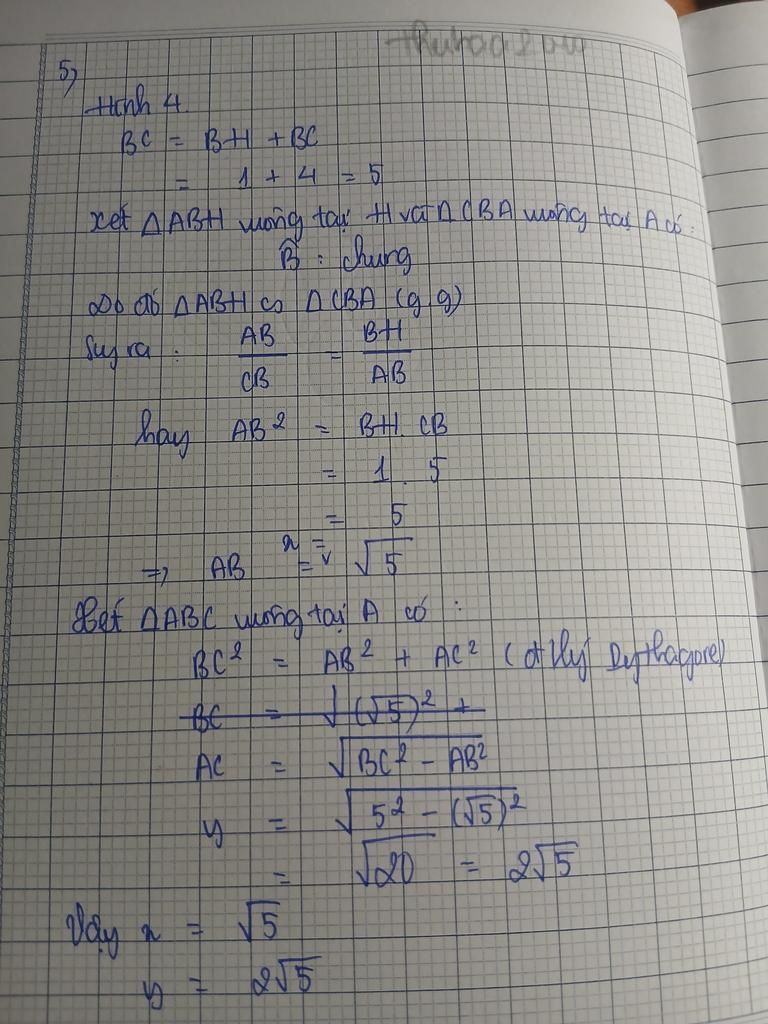 5,
Hình 4
BC = BH + BC
= 1 + 4 = 5
Xét △ABH vuông tại H và △CBA vuông tại A có :
B̂ : chung
Do đó △ABH ∽ △CBA (g.g)
Suy ra : AB/CB = BH/AB
hay AB² = BH. CB
= 1 . 5
= 5
x =
=> AB = √5
Xét △ABC vuông tại A có :
BC² = AB² + AC² (đ lý Pythagore)
BC = √(√5)² +
AC = √BC² - AB²
y = √5² - (√5)²
= √20 = 2√5
Vậy x = √5
y = 2√5